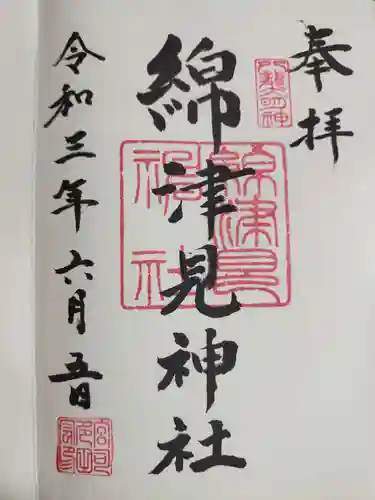 奉拝
綿津見神社
令和三年六月五日
綿津見
神社